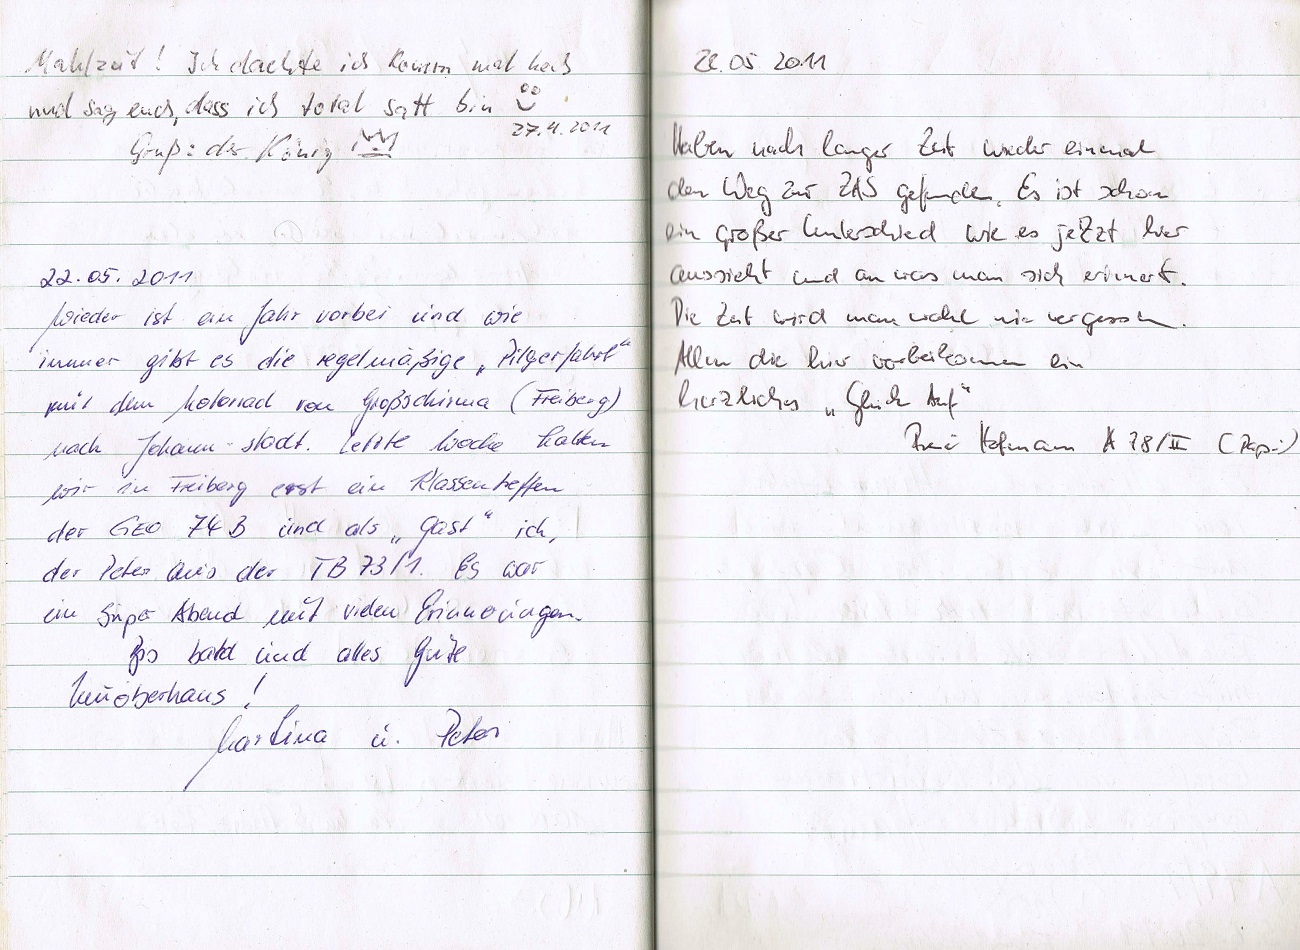 Mahlzeit! Ich dachte ich komm mal hoch
und sag euch, dass ich total satt bin
27.4.2011
Gruß: der König
22.05.2011
Wieder ist ein Jahr vorbei und wie
immer gibt es die regelmäßige „Pilgerfahrt"
mit dem Motorrad von Großschirma (Freiberg)
nach Johann-stadt. Letzte Woche hatten
wir in Freiberg erst ein Klassentreffen
der GEO 74 B und als „Gast" ich,
der Peter aus der TB 73/1. Es war
ein Super Abend mit vielen Erinnerungen.
Bis bald und alles Gute
Neuoberhaus!
Martina u. Peter
28.05.2011
Haben nach langer Zeit wieder einmal
den Weg zur ZAS gefunden. Es ist schon
ein großer Unterschied wie es jetzt hier
aussieht und an was man sich erinnert.
Die Zeit wird man wohl nie vergessen.
Allen die hier vorbeikommen ein
herzliches „Glück Auf"
Hofmann A 78/II